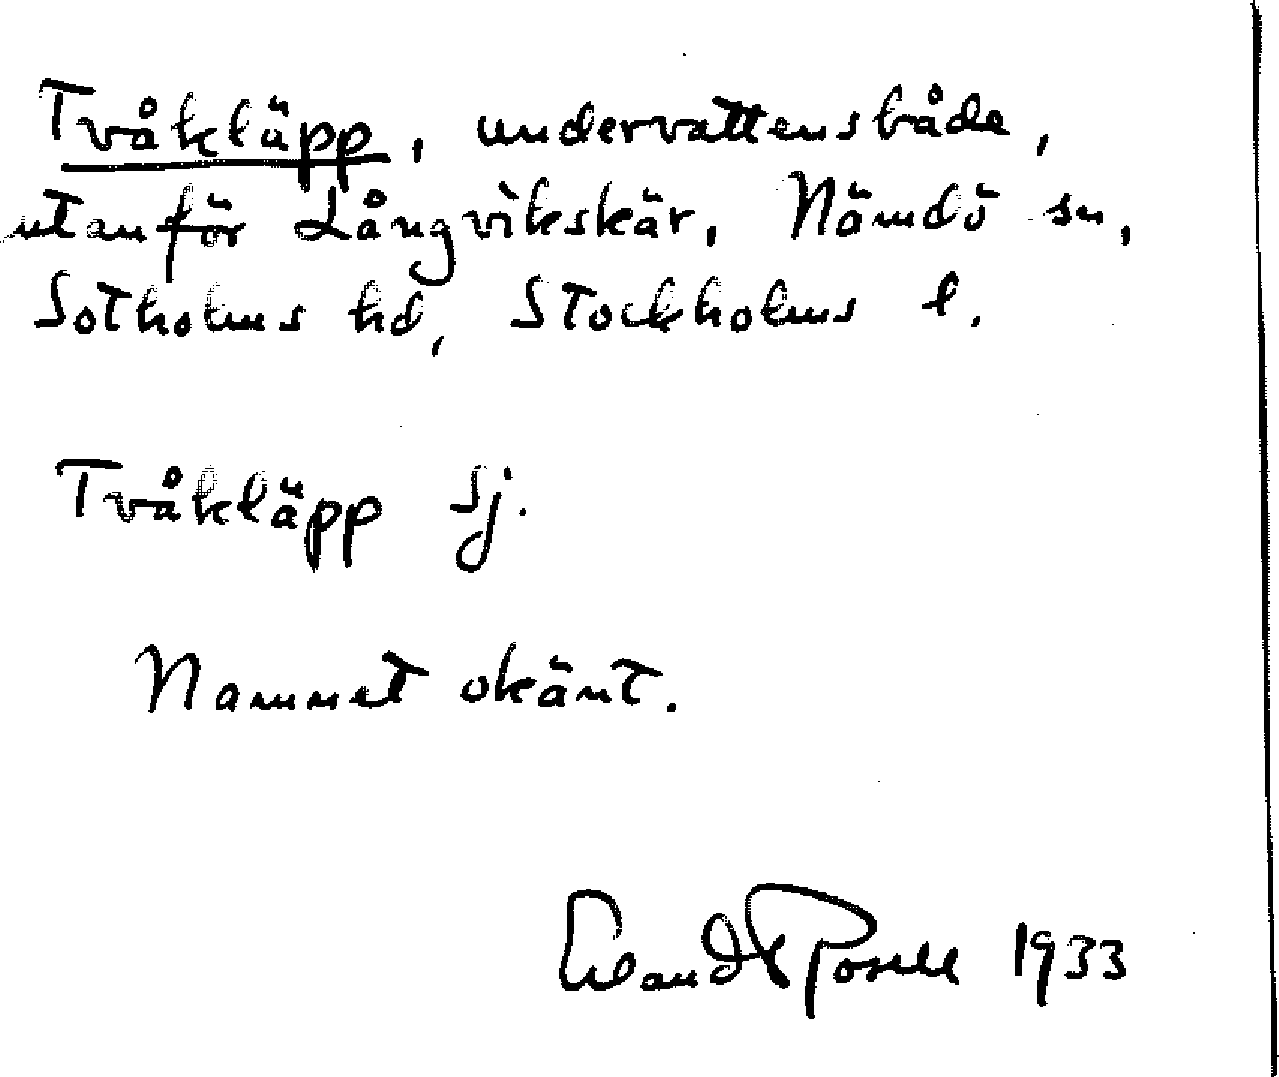 Tvåkläpp, undervattensbåde,
utanför Långvikskär, Nämdö sn,
Sotholms hd, Stockholms l.
Tvåkläpp Sj.
Namnet okänt.
Erland Rosell 1933